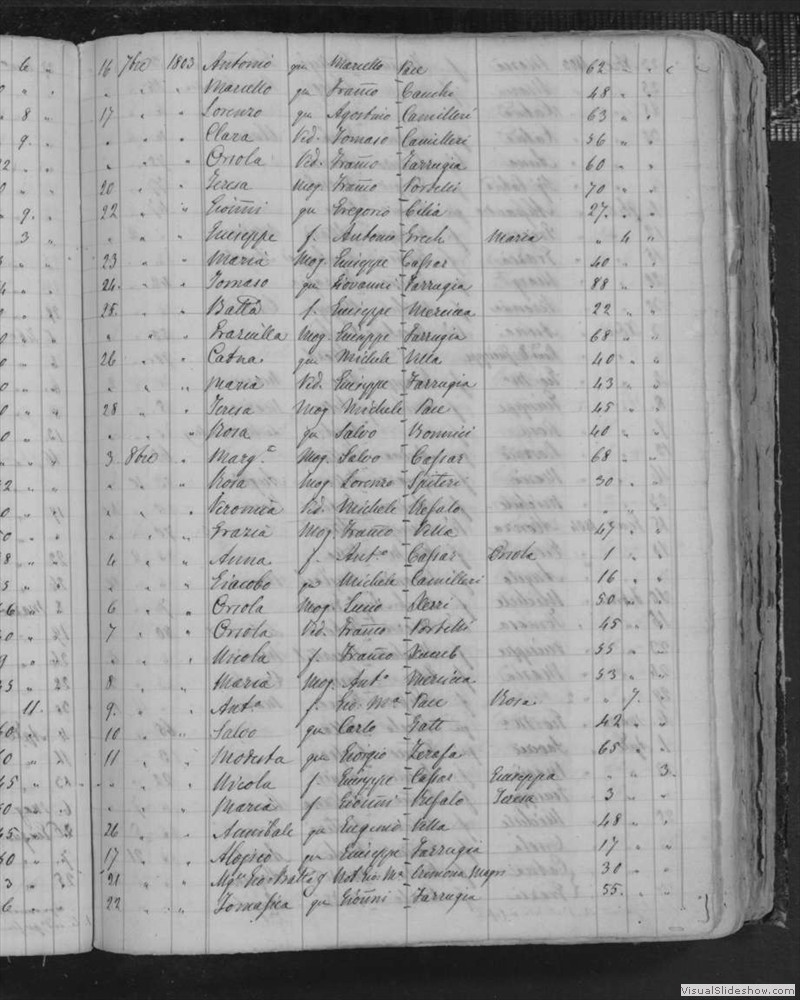 6 " 16 7bre 1803 Antonio qu Marcello Pace 62 " "
" " " Marcello qu Franco Cauchi 48 " "
8 " 17 " " Lorenzo qu Agostino Camilleri 63 " "
9. " " " " Clara Vid. Tomaso Camilleri 56 " "
" " " Orsola Vid. Franco Farrugia 60 " "
20 " " Teresa Mog. Franco Portelli 70 " "
9. " 22 " " Gioñni qu Gregorio Cilia 27. " "
3 " " " " Giuseppe f. Antonio Grech Maria " 4 "
23 " " Maria Mog. Giuseppe Cassar 40 " "
24. " " Tomaso qu Giovanni Farrugia 88 " "
25. " " Batta f. Giuseppe Mercieca 22 " "
" " " Mog. Giuseppe Farrugia 68 " "
26 " " Catna. qu Michele Vella 40 " "
" " " Maria Vid. Giuseppe Farrugia 43 " "
28 " " Teresa Mog. Michele Pace 45 " "
" " " Rosa qu Salvo Bonnici 40 " "
3 8bre " Marga. Mog. Salvo Cassar 68 " "
" " " Rosa Mog. Lorenzo Spiteri 30 " "
" " " Veronica Vid. Michele Refalo " " "
" " " Grazia Mog. Franco Vella 47 " "
4 " " Anna f. Anto. Cassar Orsola 1 " "
" " " Giacobo qu Michele Camilleri 16 " "
6 " " Orsola Mog. 50 " "
7 " " Orsola Vid. Franco Portelli 45 " "
" " " Nicola f. Franco Xuereb 55 " "
8 " " Maria Mog. Anto. Mercieca 53 " "
11. " 9. " " Anto. f. Gio. Ma. Pace Rosa " 7. "
10 " " Salvo qu Carlo Gatt 42 " "
11 " " Modesta qu Giorgio Zerafa 65 " "
" " " Nicola f. Giuseppe Cassar Giuseppa " " 3.
" " " Maria f. Gioñni Refalo Teresa 3 " "
26 " " Annibale qu Eugenio Vella 48 " "
17 " " Aloisio qu Giuseppe Farrugia 17 " "
21 " " 30 " "
22 " " qu Gioñni Farrugia 55. " "
VisualSlideshow.com